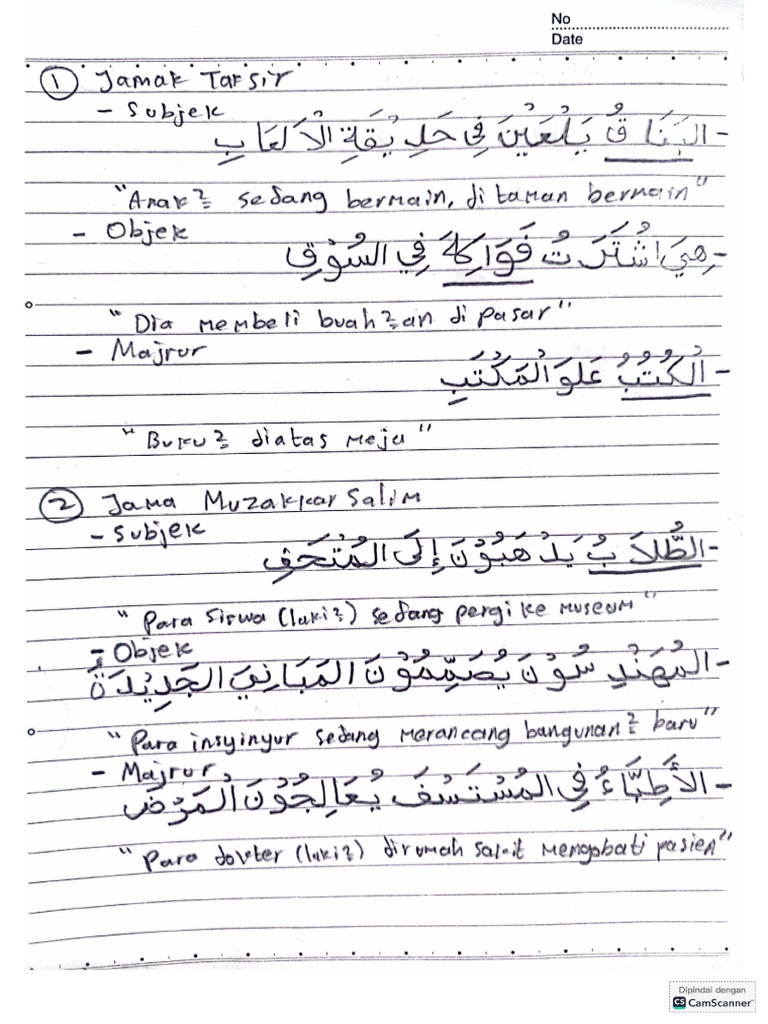 No
Date
① Jamak Taksir
- Subjek
- البَنَاقُ يَلْعَبْنَ فِي حَدِيْقَةِ الْأَلْعَابِ
"Anak² sedang bermain, di taman bermain"
- Objek
- هِيَ اشْتَرَتُ فَوَاكِهَ فِي السُّوْقِ
"Dia membeli buah²an di pasar"
- Majrur
- الْكُتُبُ عَلَى الْمَكْتَبِ
"Buku² diatas meja"
② Jama Muzakkar Salim
- Subjek
- الطُّلَابُ يَذْهَبُوْنَ إِلَى الْمُتْحَفِ
"Para siswa (laki²) sedang pergi ke museum"
- Objek
- المُهَنْدِسُوْنَ يُصَمِّمُوْنَ الْمَبَانِيَ الْجَدِيْدَةَ
"Para insyinyur sedang merancang bangunan² baru"
- Majrur
- الأَطِبَّاءُ فِي الْمُسْتَسْفَ يُعَالِجُوْنَ الْمَرْضَ
"Para dokter (laki²) dirumah sakit mengobati pasien"
Dipindai dengan
CS CamScanner